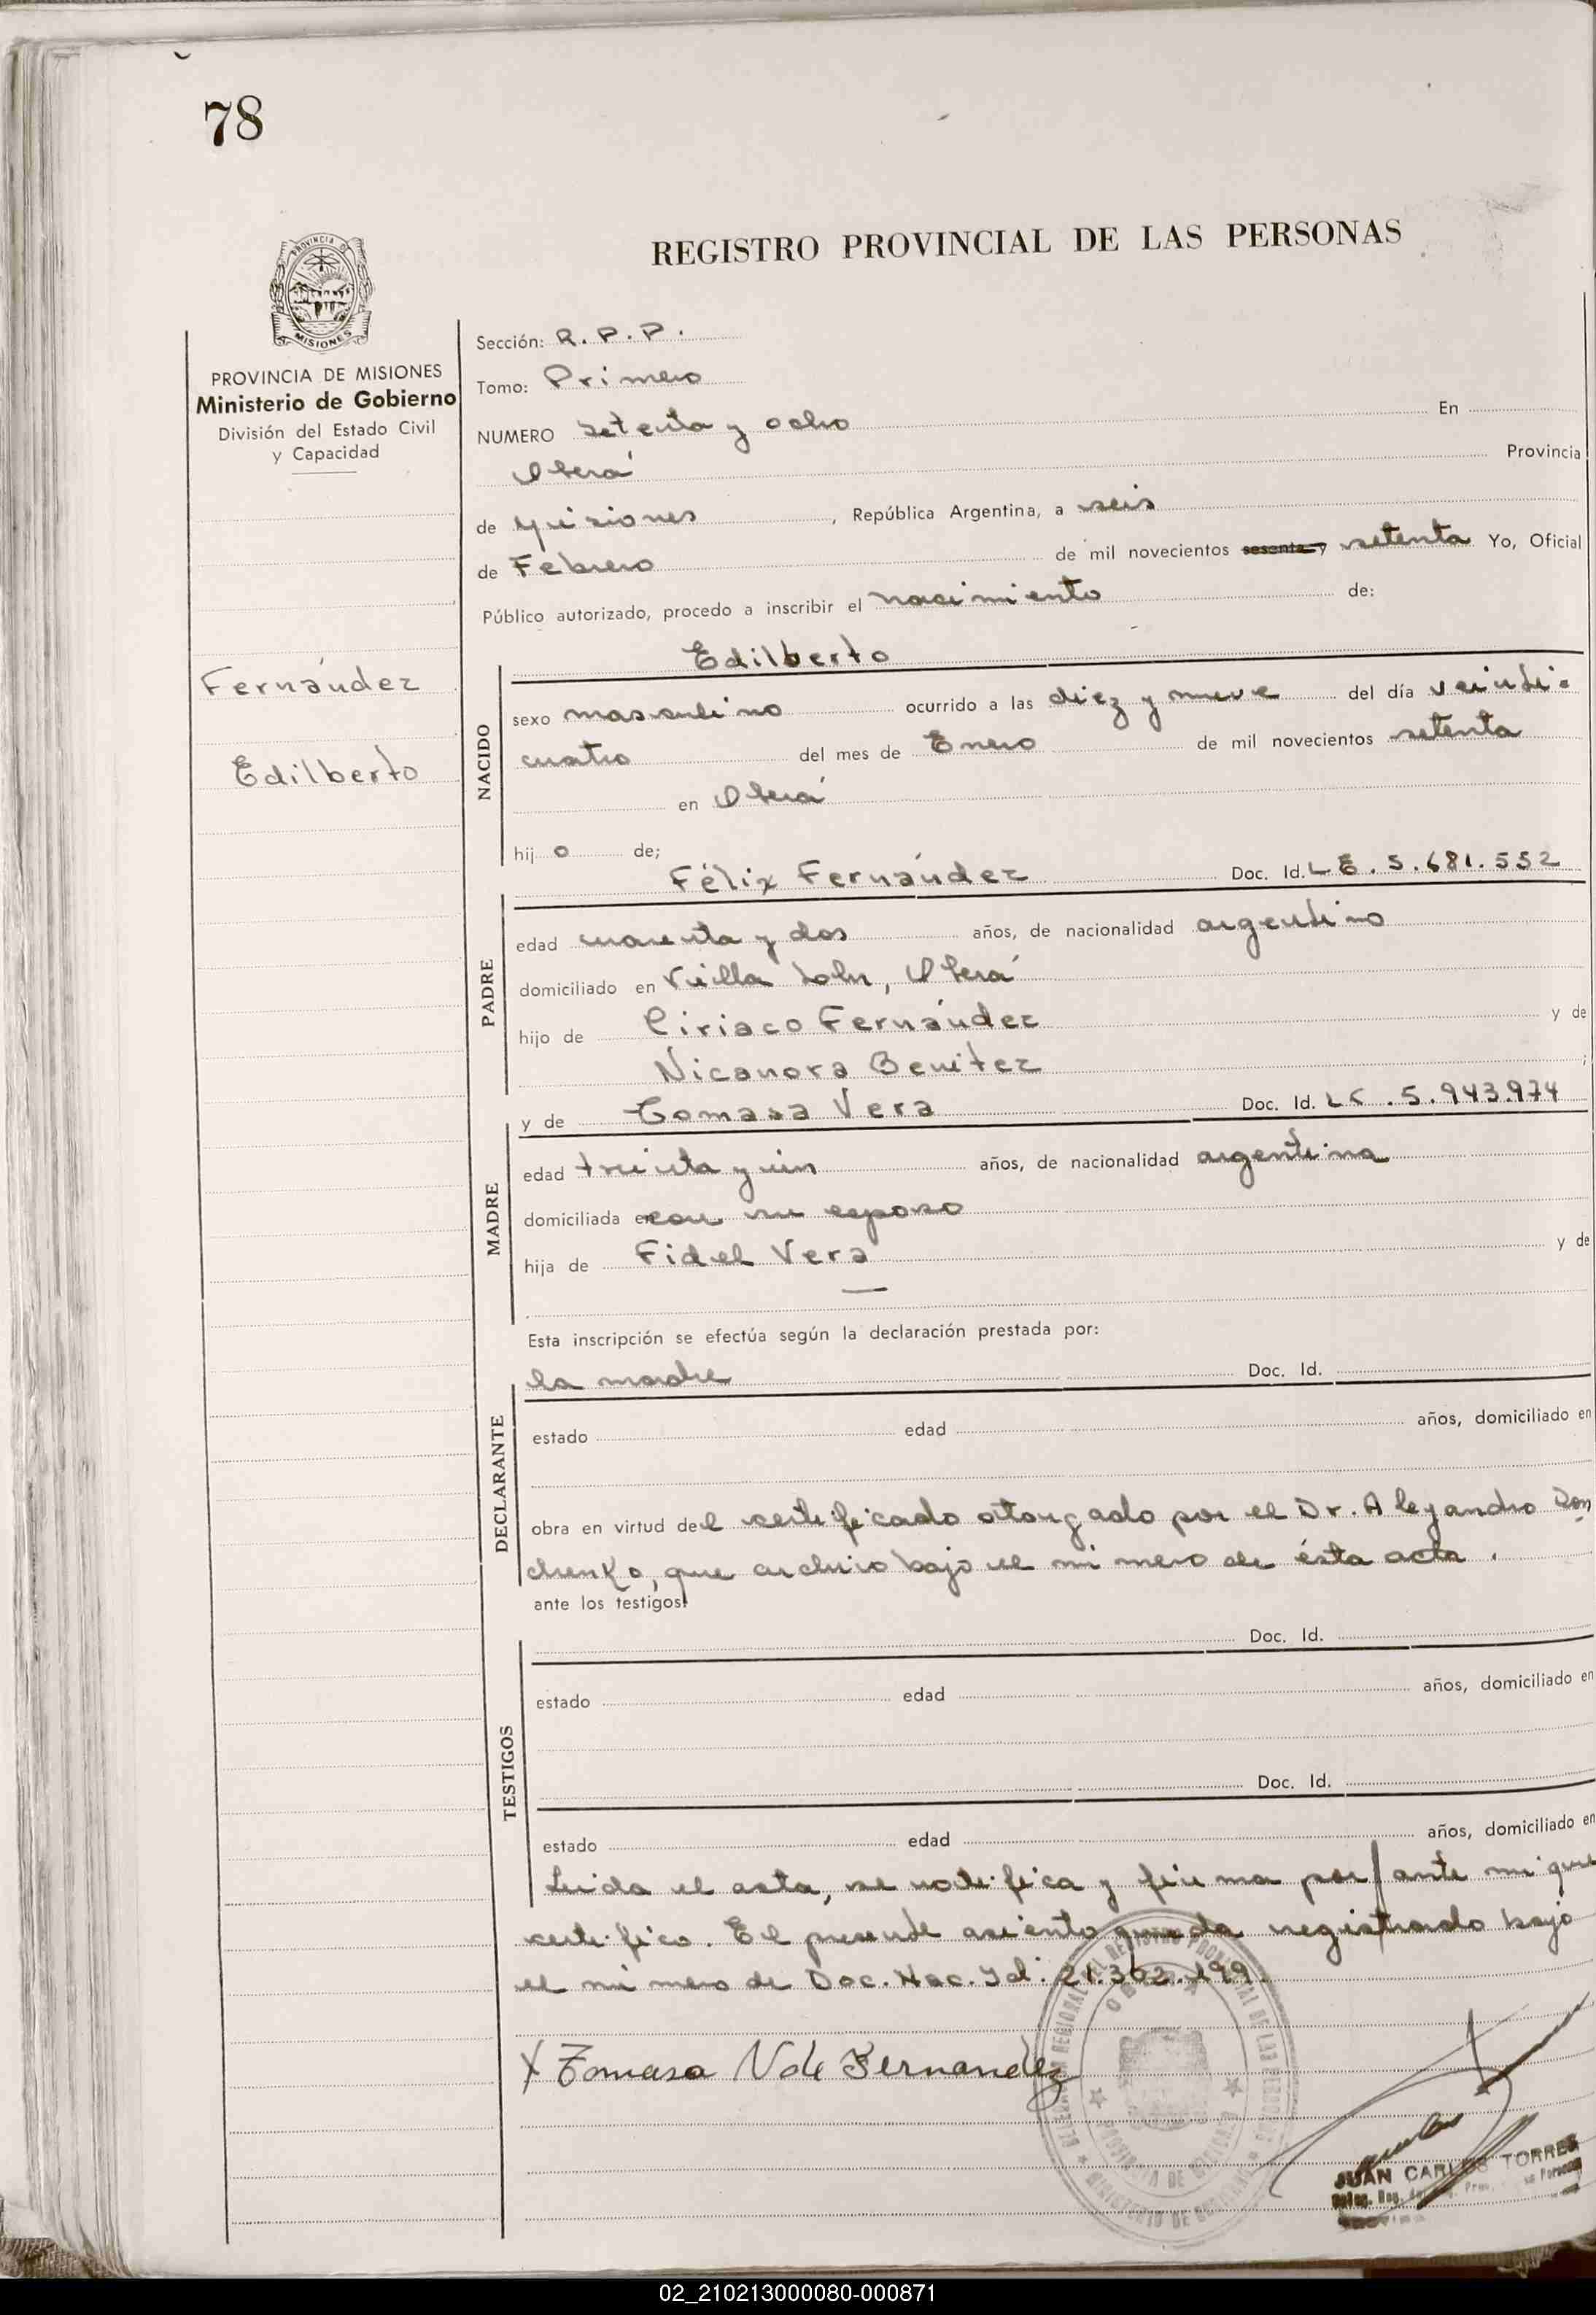 78
REGISTRO PROVINCIAL DE LAS PERSONAS
PROVINCIA DE MISIONES
Ministerio de Gobierno
División del Estado Civil
y Capacidad
Fernández
Edilberto
Sección: R. P. P.
Tomo: Primero
NUMERO setenta y ocho En
Oberá Provincia
de Misiones, República Argentina, a seis
de Febrero de mil novecientos sesenta y setenta Yo, Oficial
Público autorizado, procedo a inscribir el nacimiento de:
Edilberto
NACIDO
sexo masculino ocurrido a las diez y nueve del día veinti-
cuatro del mes de Enero de mil novecientos setenta
en Oberá
hij o de;
Félix Fernández Doc. Id. L E. 5.681.552
PADRE
edad cuarenta y dos años, de nacionalidad argentino
domiciliado en Villa , Oberá
hijo de Ciriaco Fernández y de
Nicanora Benitez ;
y de Tomasa Vera Doc. Id. L C . 5.943.974
MADRE
edad treinta y un años, de nacionalidad argentina
domiciliada en con su esposo
hija de Fidel Vera y de
—
Esta inscripción se efectúa según la declaración prestada por:
la madre Doc. Id.
DECLARANTE
estado edad años, domiciliado en
obra en virtud del certificado otorgado por el Dr. Alejandro
chenko, que archivo bajo el número de ésta acta .
ante los testigos:
Doc. Id.
TESTIGOS
estado edad años, domiciliado en
Doc. Id.
estado edad años, domiciliado en
Leida el acta, se notifica y firma por ante mi que
certifico. El presente asiento queda registrado bajo
el número de Doc. Nac. Id. 21.302.199.
X Tomasa V de Fernandez
JUAN CARLOS TORRES
02_210213000080-000871